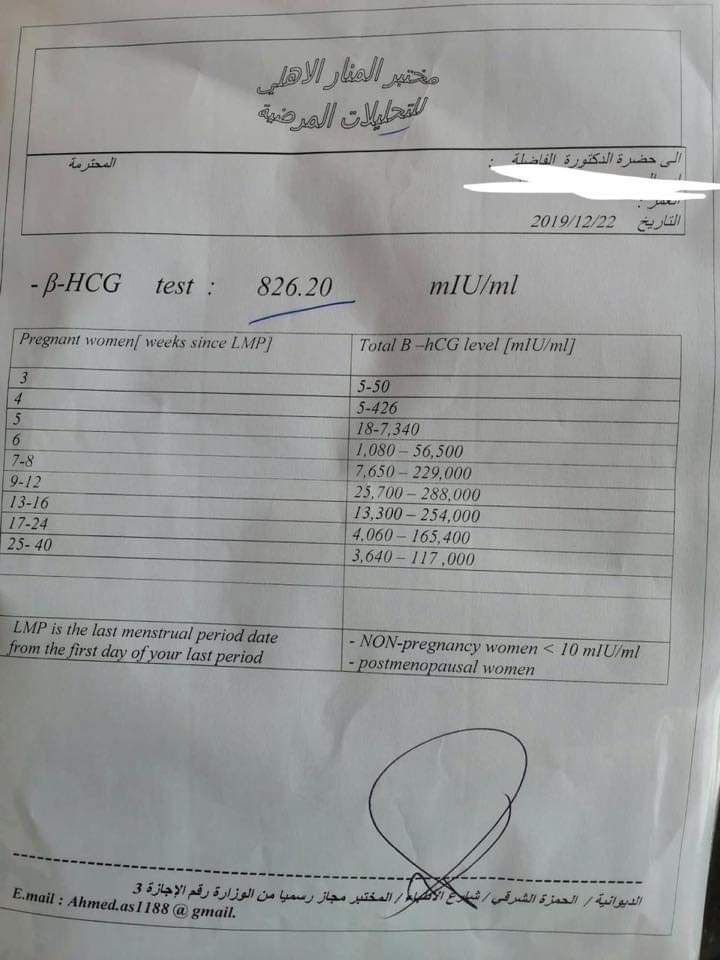 مختبر المنار الاهلي
للتحليلات المرضية
الى حضرة الدكتورة الفاضلة : المحترمة
العمر :
التاريخ 2019/12/22
- β-HCG test : 826.20 mIU/ml
Pregnant women[ weeks since LMP] Total B –hCG level [mIU/ml]
3 5-50
4 5-426
5 18-7,340
6 1,080 – 56,500
7-8 7,650 – 229,000
9-12 25,700 – 288,000
13-16 13,300 – 254,000
17-24 4,060 – 165,400
25- 40 3,640 – 117 ,000
LMP is the last menstrual period date
from the first day of your last period
- NON-pregnancy women < 10 mIU/ml
- postmenopausal women
الديوانية / الحمزة الشرقي / شارع الأطباء / المختبر مجاز رسميا من الوزارة رقم الإجازة 3
E.mail : Ahmed.as1188 @ gmail.